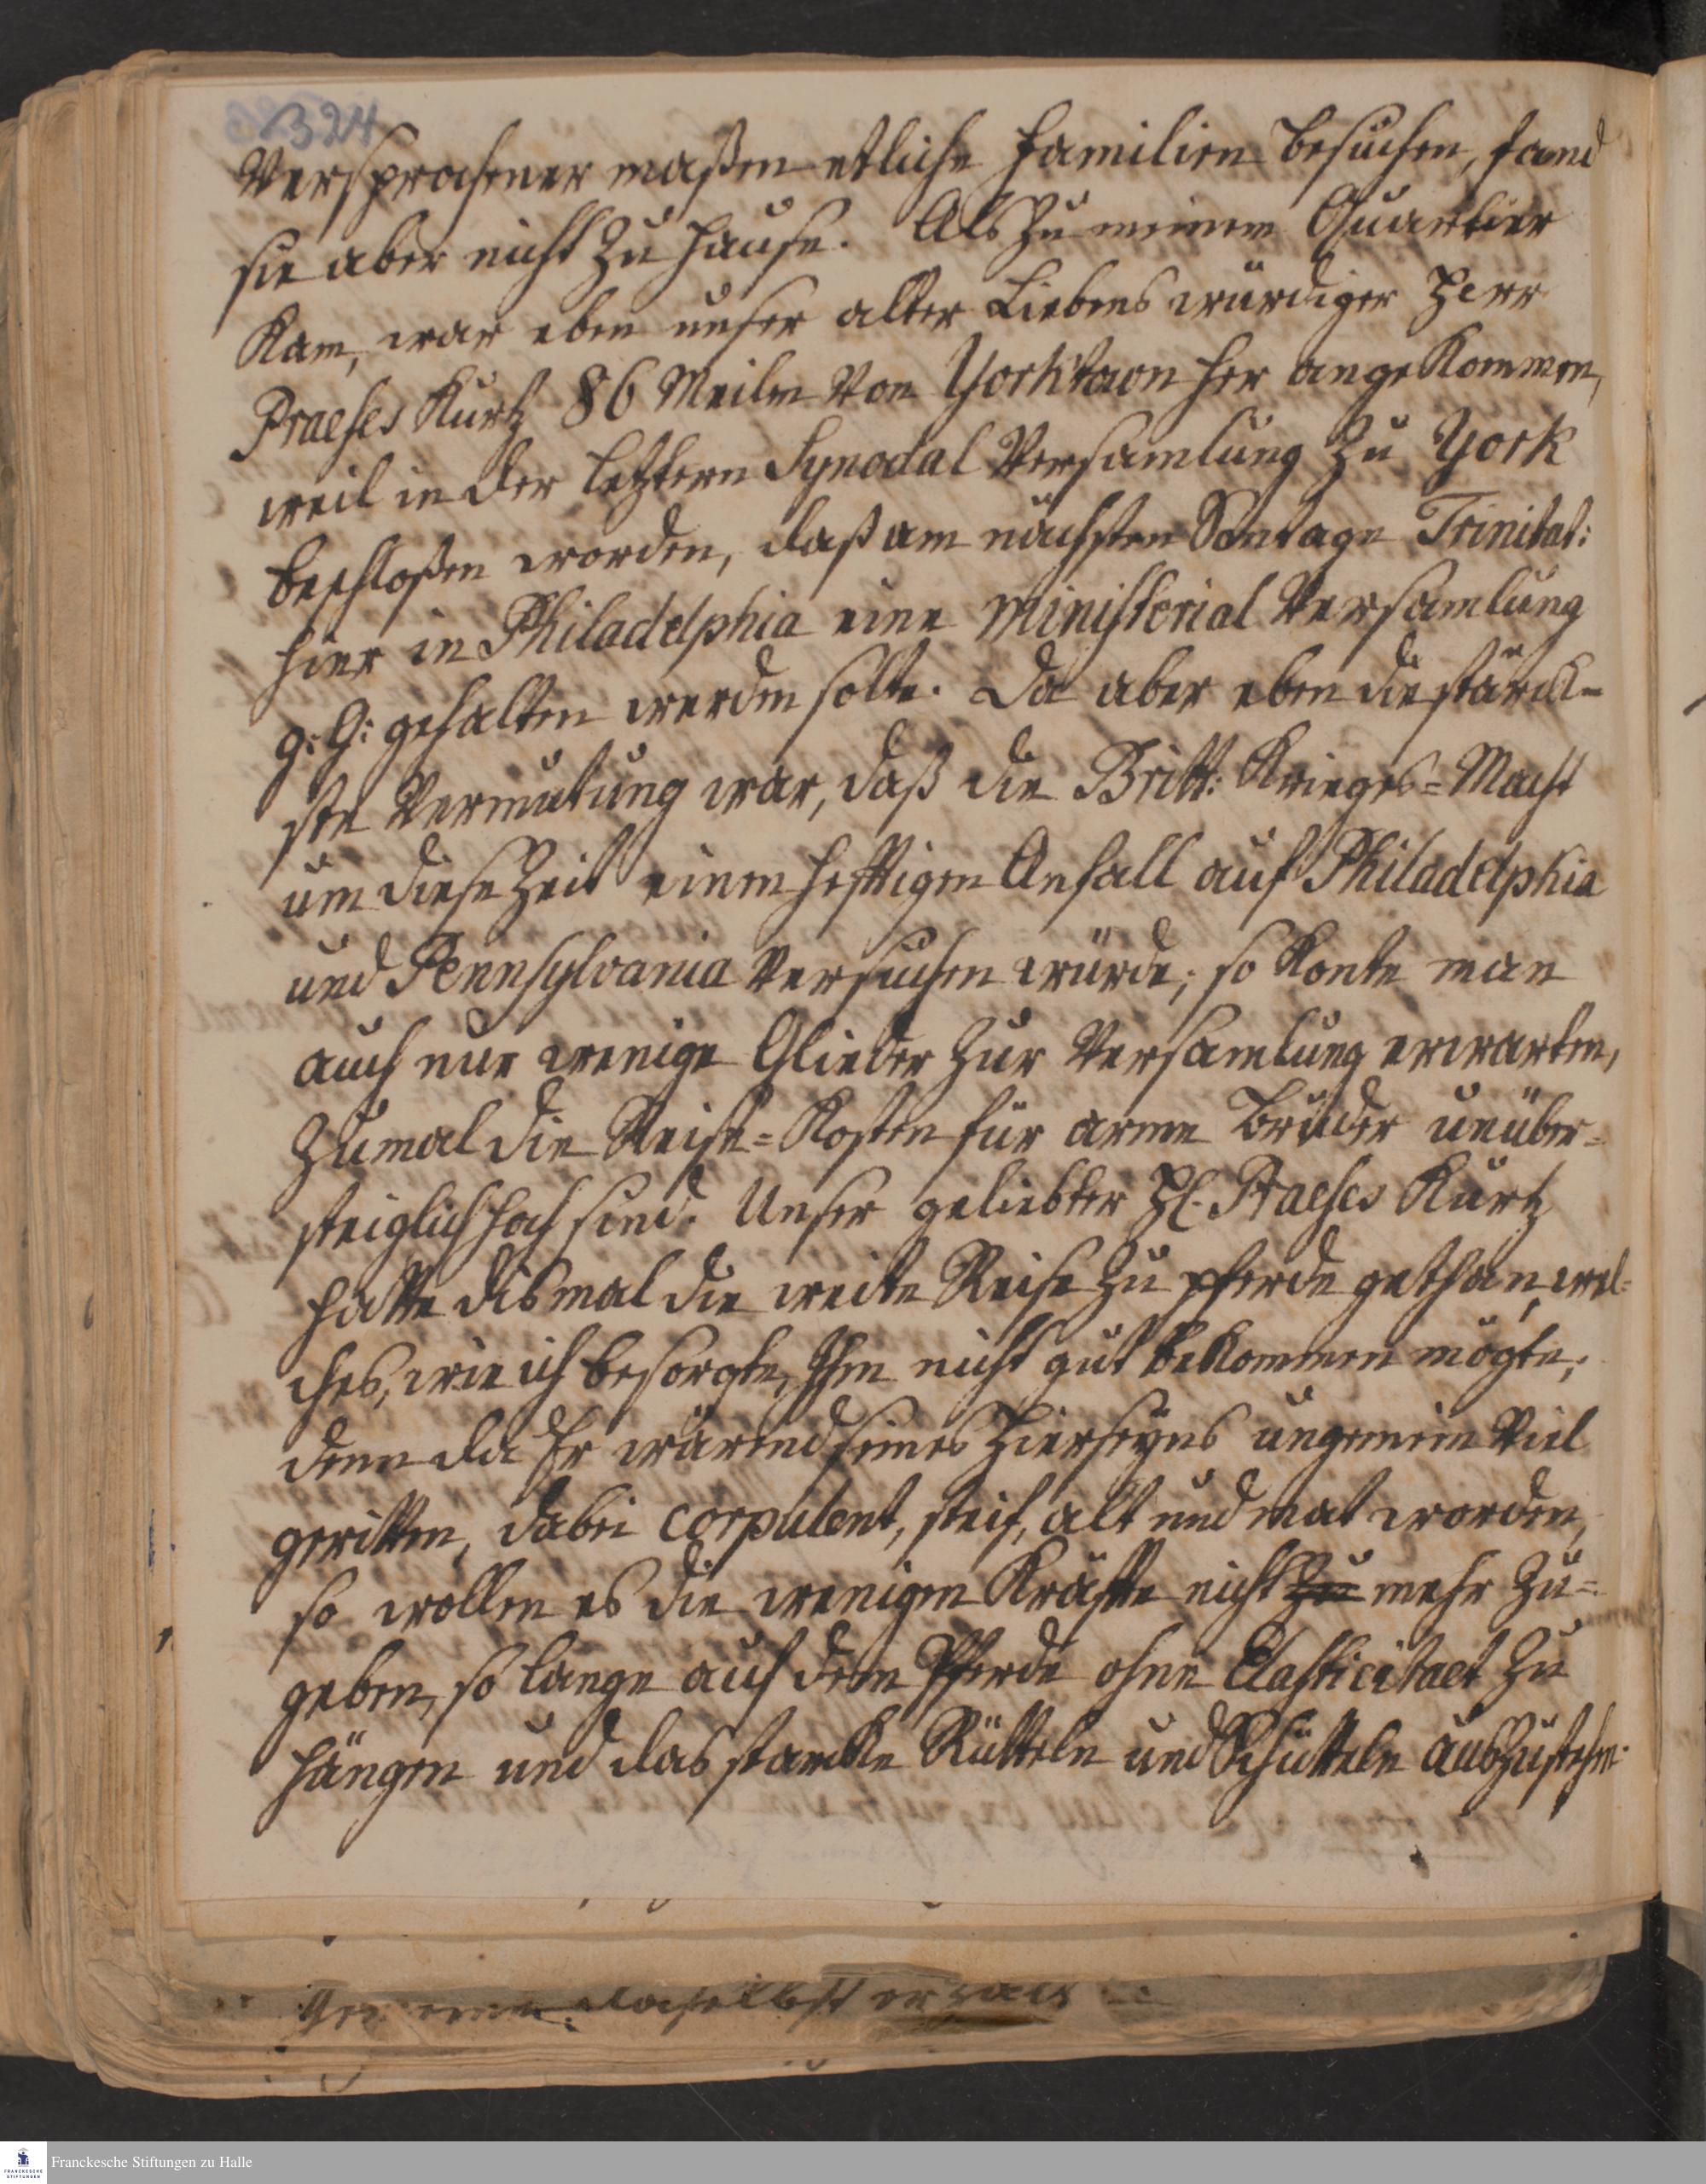 324
Versprochener maßen etliche Familien besuchen, fand
sie aber nicht zu Hause. Als zu meinem Quartier
kam, war eben unser alter Liebens würdiger Herr
Praeses Kurtz 86 Meilen von Yorktown her angekommen,
weil in der letztern Synodal Versamlung zu York
beschloßen worden, daß am nächsten Sontage Trinitat:
hier in Philadelphia eine Ministerial Versamlung
g: G: gehalten werden solte. Da aber eben die stärck-
ste Vermutung war, daß die Britt: Krieges=Macht
um diese Zeit einen heftigen Anfall auf Philadelphia
und Pennsylvania versuchen würde; so konte man
auch nur wenige Glieder zur Versamlung erwarten,
zumal die Reise=Kosten für arme Brüder unüber=
steiglich hoch sind. Unser geliebter H. Praeses Kurtz
hatte dismal die weite Reise zu Pferde gethan, wel=
ches, wie ich besorgte, Ihm nicht gut bekommen mögte;
denn da Er wärend seines Hierseyns ungemein viel
geritten, dabei corpulent, steif, alt und mat worden,
so wollen es die wenigen Kräfte nicht zu mehr zu=
geben, so lange auf dem Pferde ohne Elasticitaet zu
hängen und das starcke Rütteln und Schütteln auszustehen.
daselbst
Franckesche Stiftungen zu Halle
FRANCKESCHE STIFTUNGEN